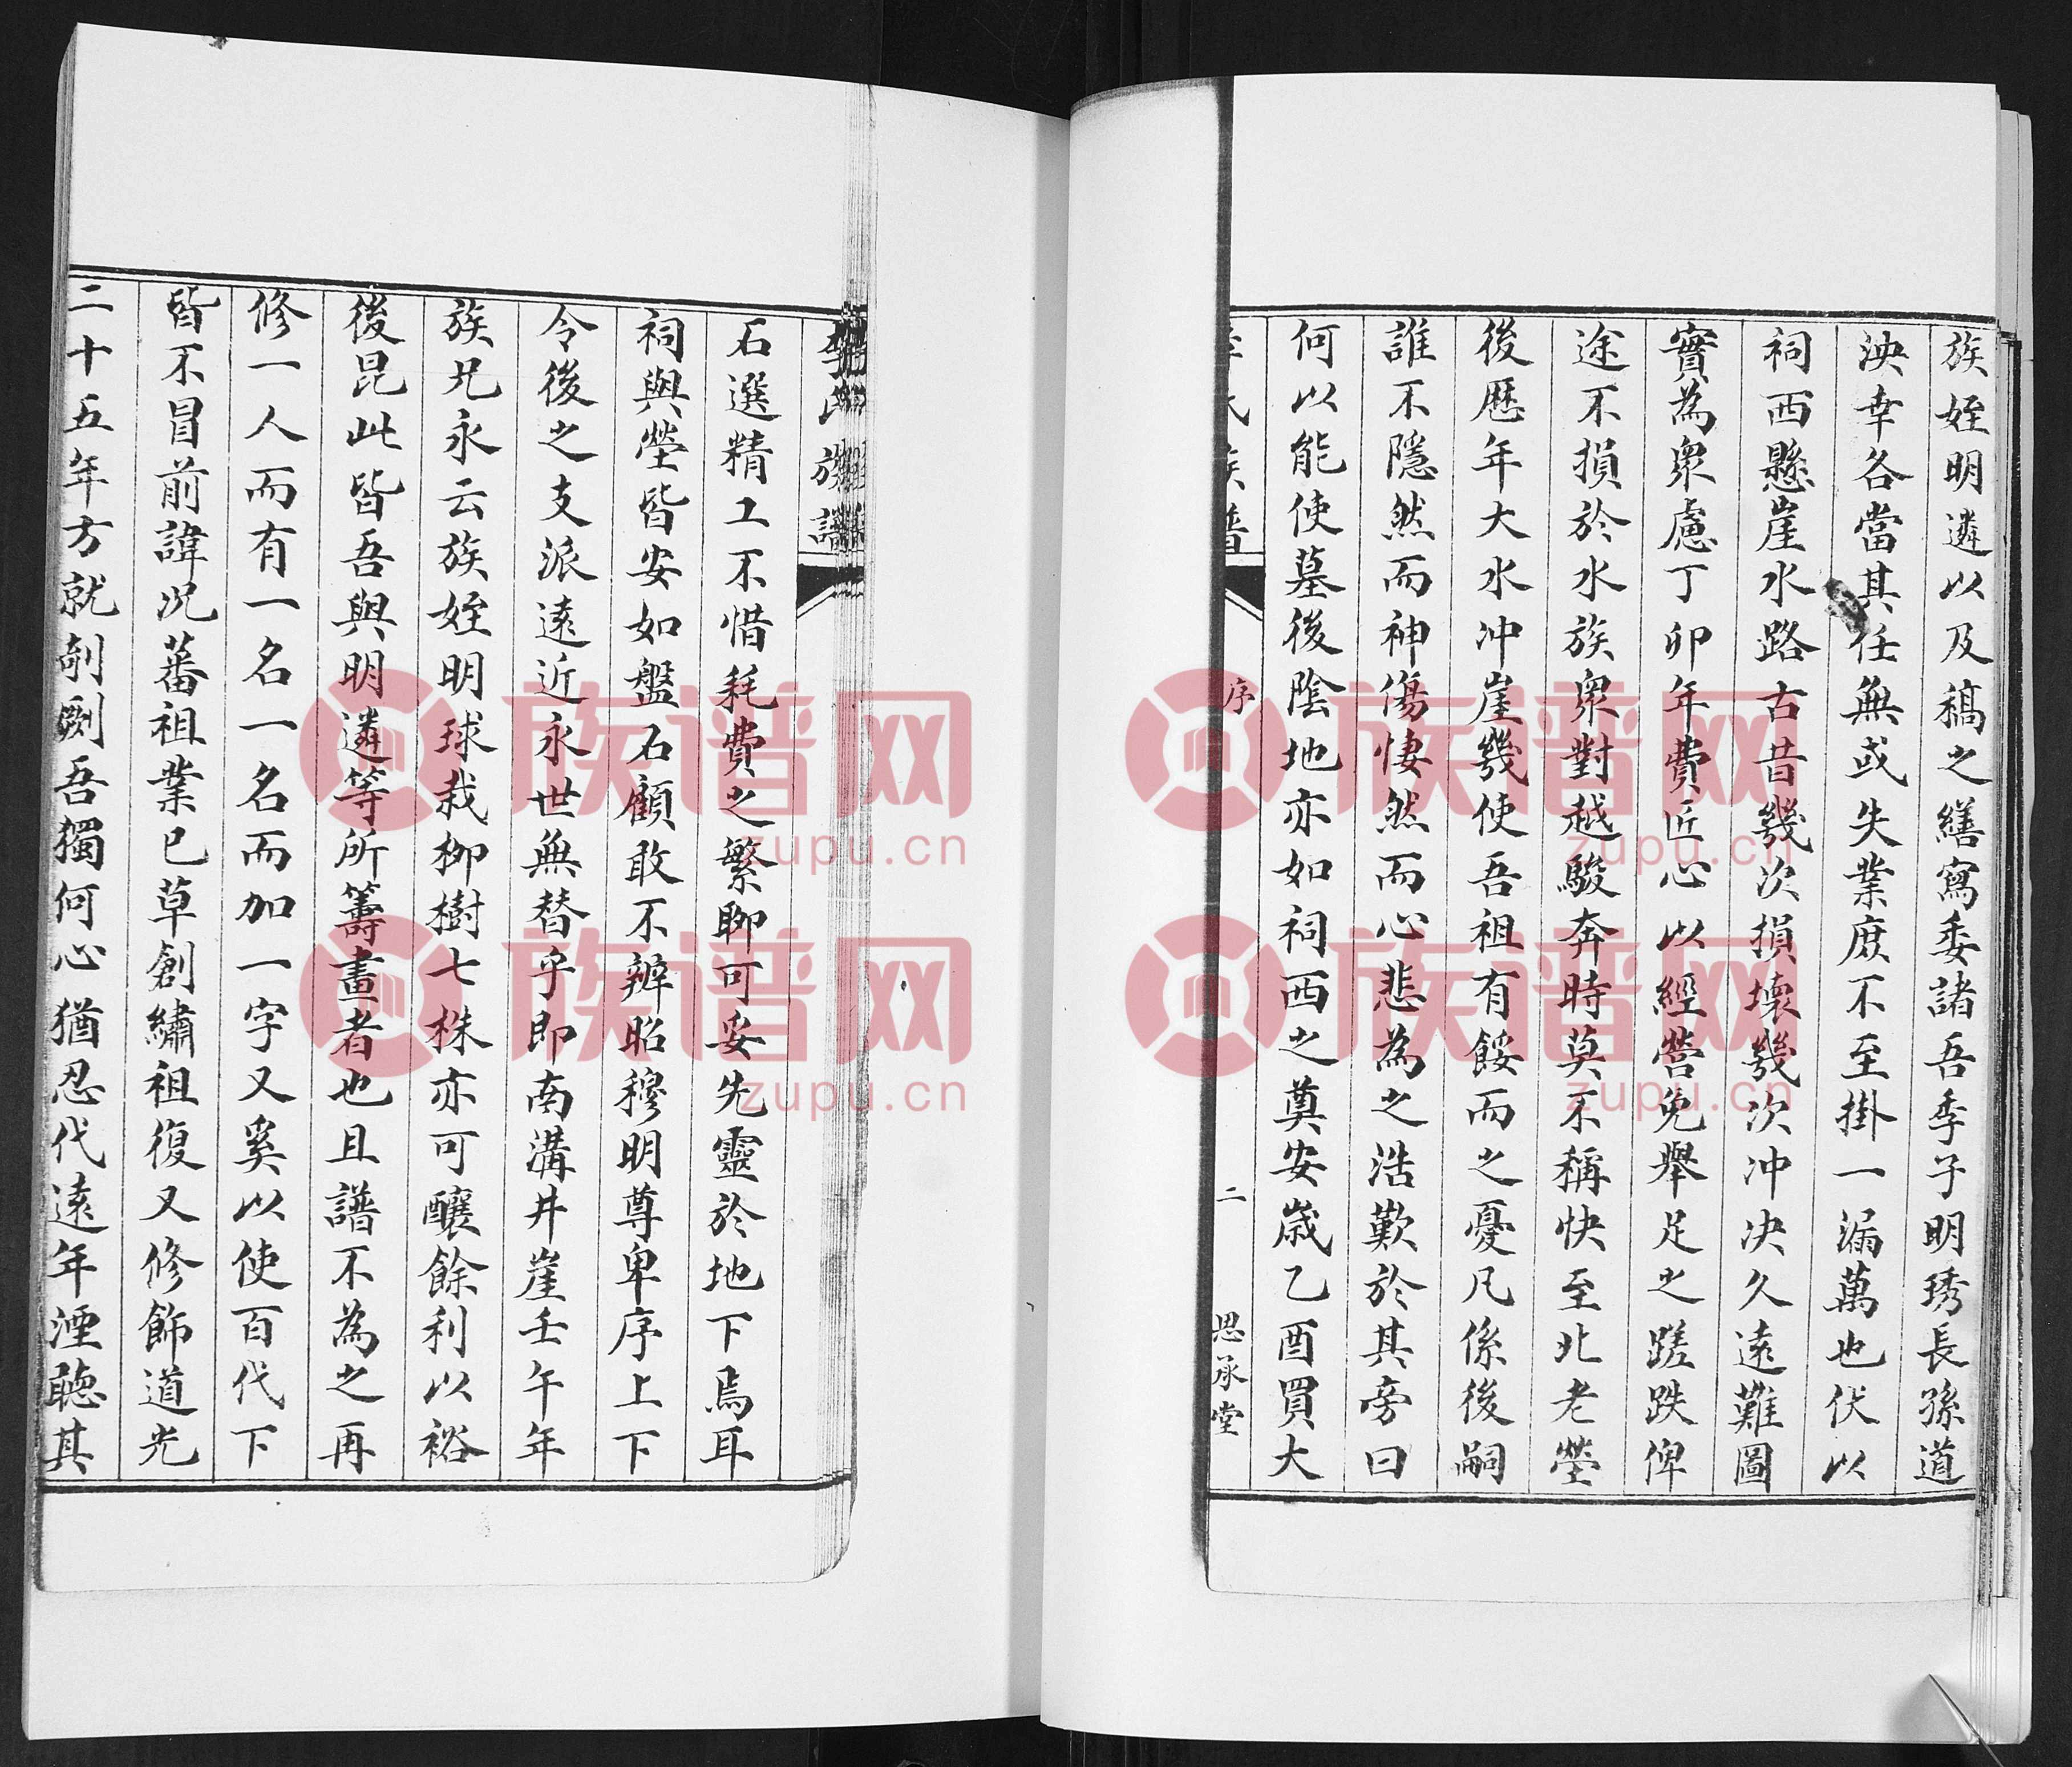 族姪明遴以及稿之繕寫委諸吾季子明琇長孫道
泱幸各當其任無或失業庶不至掛一漏萬也伏以
祠西懸崖水路古昔幾次損壞幾次冲決久遠難圖
實為眾慮丁卯年費匠心以經營免舉足之蹉跌俾
途不損於水族眾對越駿奔時莫不稱快至北老塋
後歷年大水冲崖幾使吾祖有餒而之憂凡係後嗣
誰不隱然而神傷悽然而心悲為之浩歎於其旁曰
何以能使墓後陰地亦如祠西之奠安歲乙酉買大
李氏族譜
序
二
思承堂
李氏族譜
石選精工不惜耗費之繁聊可妥先靈於地下焉耳
祠與塋皆安如盤石顧敢不辨昭穆明尊卑序上下
令後之支派遠近永世無替乎即南溝井崖壬午年
族兄永云族姪明球栽柳樹七株亦可釀餘利以裕
後昆此皆吾與明遴等所籌畫者也且譜不為之再
修一人而有一名一名而加一字又奚以使百代下
皆不冒前諱况蕃祖業已草創繡祖復又修飾道光
二十五年方就剞劂吾獨何心猶忍代遠年湮聽其
族谱网
zupu.cn
族谱网
zupu.cn
族谱网
zupu.cn
族谱网
zupu.cn